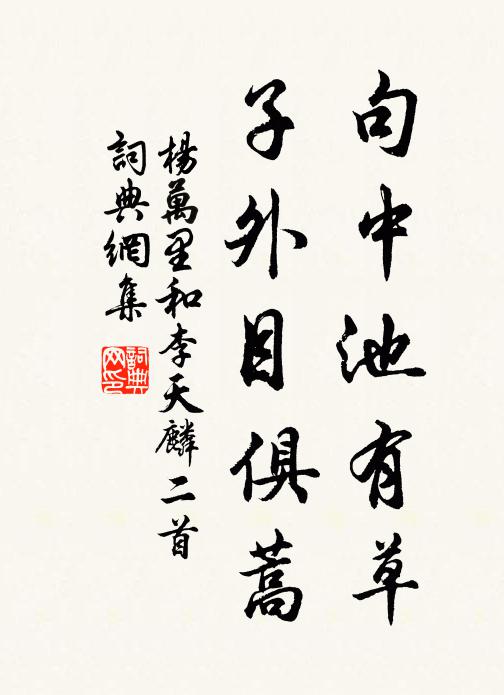 句中池有草
子外目俱蒿
楊萬里和李天麟二首
詞典網集
詞典網印